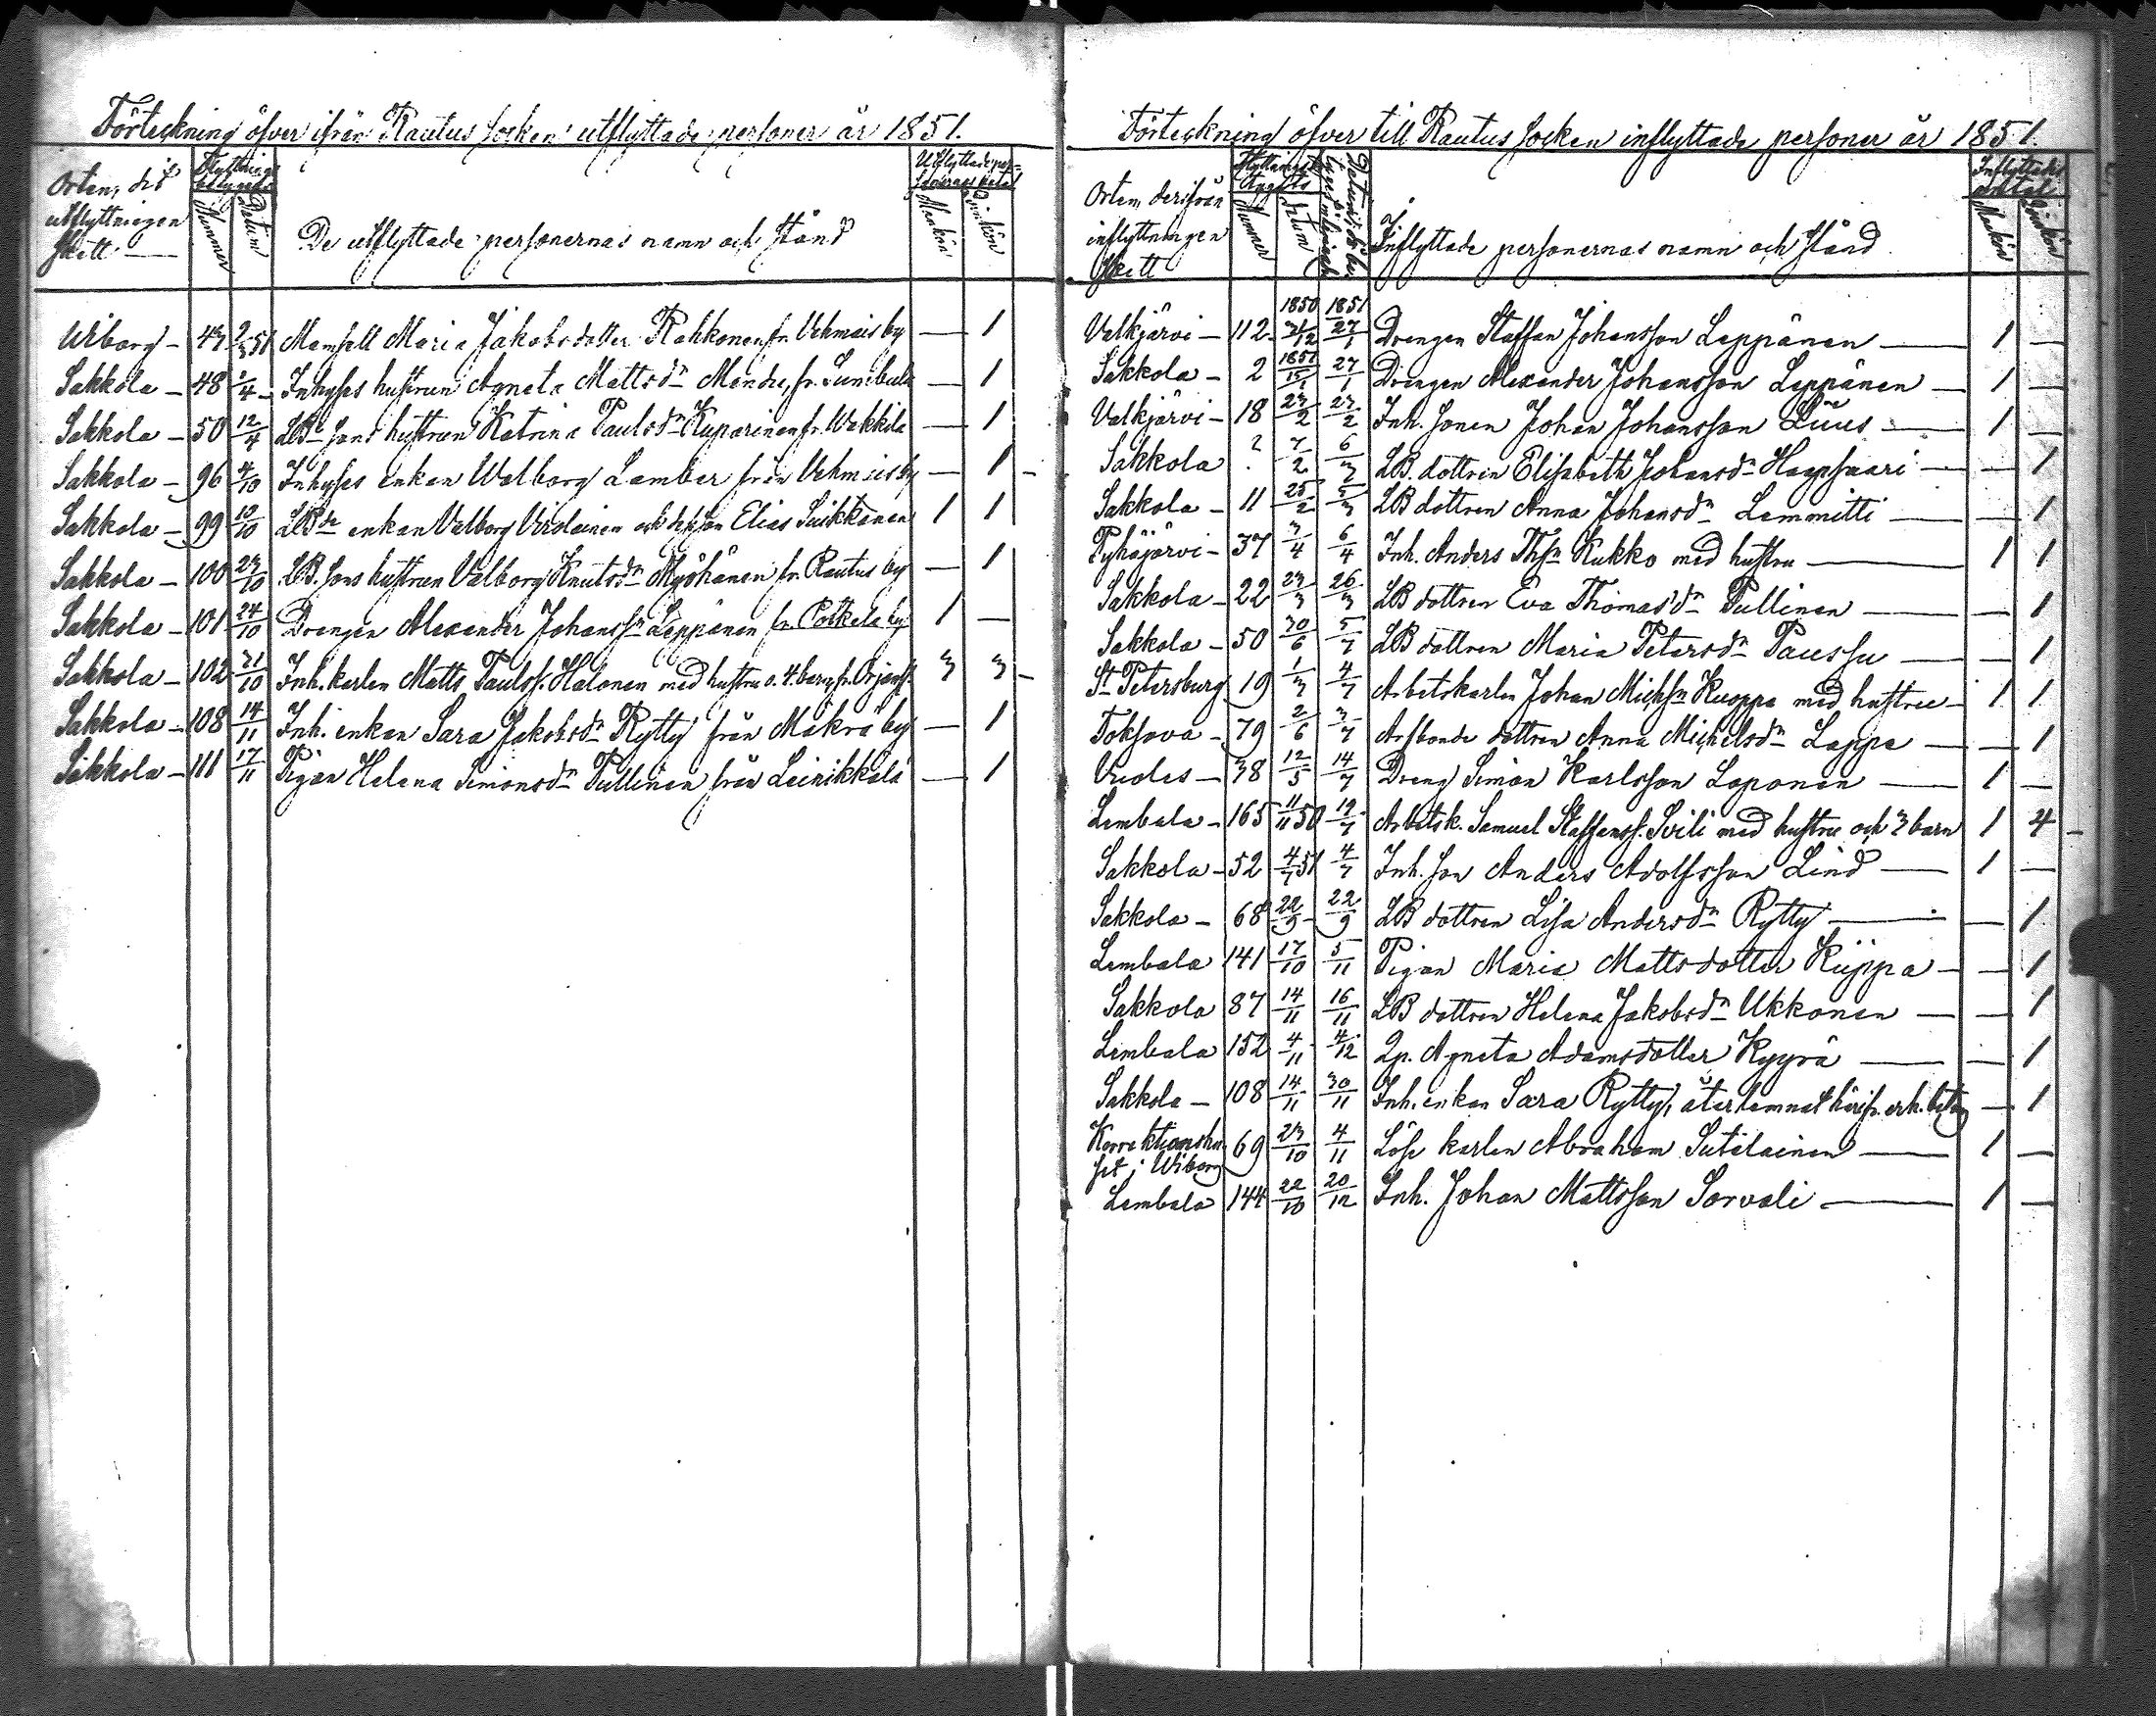 Förteckning öfver ifrån Rautus socken utflyttade personer år 1851.
Orten, dit utflyttningen skett
Flyttnings betygets
Nummer
Datum
De utflyttade personernas namn och stånd
Utflyttade personernas antal
Mankön
Qvinkön
Wiborg - 43 2/3 51 Mamsell Maria Jakobsdotter Rahkonen fr. Vehmais by — 1
Sakkola - 48 1/4 Inhyses hustrun Agneta Mattsdr Mendre, fr. Sumbula — 1
Sakkola - 50 12/4 LBde sons hustrun Katrina Paulsdr Kuparinen fr. Wakkila — 1
Sakkola - 96 4/10 Inhyses enkan Walborg Lamber från Vehmais by — 1
Sakkola - 99 10/10 LBde enkan Valborg Virolainen och Elias Suikkanen 1 1
Sakkola - 100 23/10 LB. sons hustrun Valborg Knutsdr Myöhänen fr. Rautus by — 1
Sakkola - 101 24/10 Drengen Alexander Johanssn Leppänen fr. Potkela by 1 —
Sakkola - 102 31/10 Inh. karlen Matts Paulss. Halonen med hustru o. 4 barn, fr. Orjans. 3 3
Sakkola - 108 14/11 Inh. enkan Sara Jakobsdr Rytty från Makrä by — 1
Sakkola - 111 17/11 Pigan Helena Simonsdr Pullinen från Leinikkälä — 1
Förteckning öfver till Rautus socken inflyttade personer år 1851.
Orten, derifrån inflyttningen skett
Flyttnings betygets
Nummer
Datum
Inflyttade personernas namn och stånd
Inflyttades antal
Mankön
Qvinkön
1850 1851
Valkjärvi - 112 31/12 27/1 Drengen Staffan Johansson Leppänen — 1 —
Sakkola - 2 1851 15/1 27/1 Drengen Alexander Johansson Leppänen — 1 —
Valkjärvi - 18 23/2 23/2 Inh. sonen Johan Johansson Luus — 1 —
Sakkola ? 7/2 6/3 LB. dottren Elisabeth Johansdr Haapsaari — — 1
Sakkola - 11 25/2 5/3 LB dottren Anna Johansdr Lemmitti — — 1
Pyhäjärvi - 37 3/4 6/4 Inh. Anders Thsn Kukko med hustru — 1 1
Sakkola - 22 23/3 26/3 LB dottren Eva Thomasdr Pullinen — — 1
Sakkola - 50 30/6 5/7 LB dottren Maria Petersdr Paussu — — 1
St Petersburg 19 1/3 4/7 Arbetskarlen Johan Michsn Kuoppa med hustru - 1 1
Toksova - 79 2/6 3/7 Arfbonde dottren Anna Michelsdr Lappa — — 1
Vuoles - 38 12/5 14/7 Dreng Simon Karlsson Loponen — 1 —
Lembala - 165 11/11 50 19/7 Arbetsk. Samuel Staffanss. Svili med hustru och 3 barn 1 4
Sakkola - 52 4/7 51 4/7 Inh. son Anders Adolfsson Lind — 1 —
Sakkola - 68 22/9 22/9 LB dottren Lisa Andersdr Rytty — — 1
Lembala 141 17/10 5/11 Pigan Maria Mattsdotter Kiippa — — 1
Sakkola 87 14/11 16/11 LB dottren Helena Jakobsdr Ukkonen — — 1
Lembala 152 4/11 4/12 Qp. Agneta Adamsdotter Kyyrä — — 1
Sakkola - 108 14/11 30/11 Inh. enkan Sara Rytty, återlemnat härifr. erh. betyg — 1
Korrektionshuset i Wiborg 69 23/10 4/11 Löse karlen Abraham Sutelainen — 1 —
Lembala 144 22/10 20/12 Inh. Johan Mattsson Sorvali — 1 —